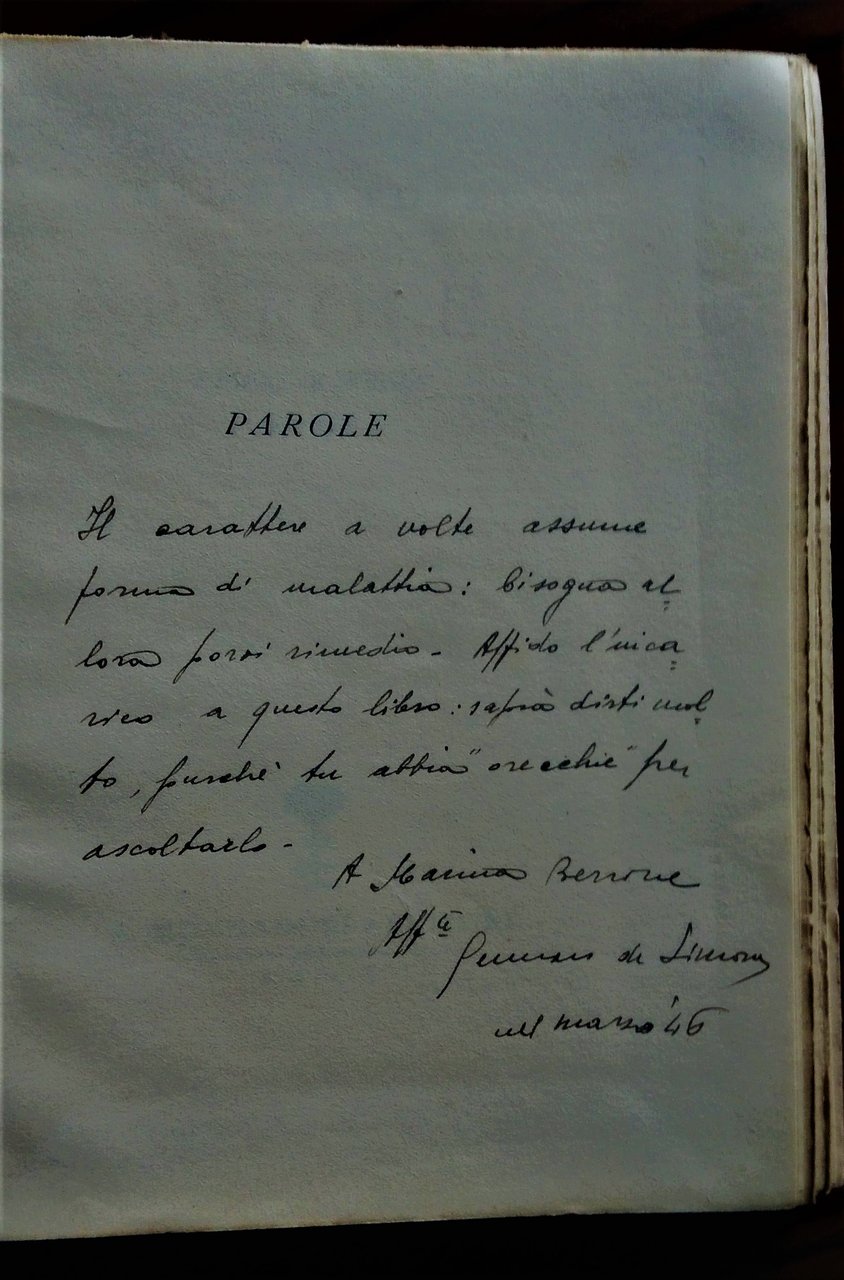 PAROLE
Il carattere a volte assume
forma di malattia: bisogna al=
lora porvi rimedio - Affido l'inca=
rico a questo libro: saprà dirti mol=
to, purché tu abbia "orecchie" per
ascoltarlo -
A Marina Berrone
Aff.te
Gennaro de Simone
nel marzo '46